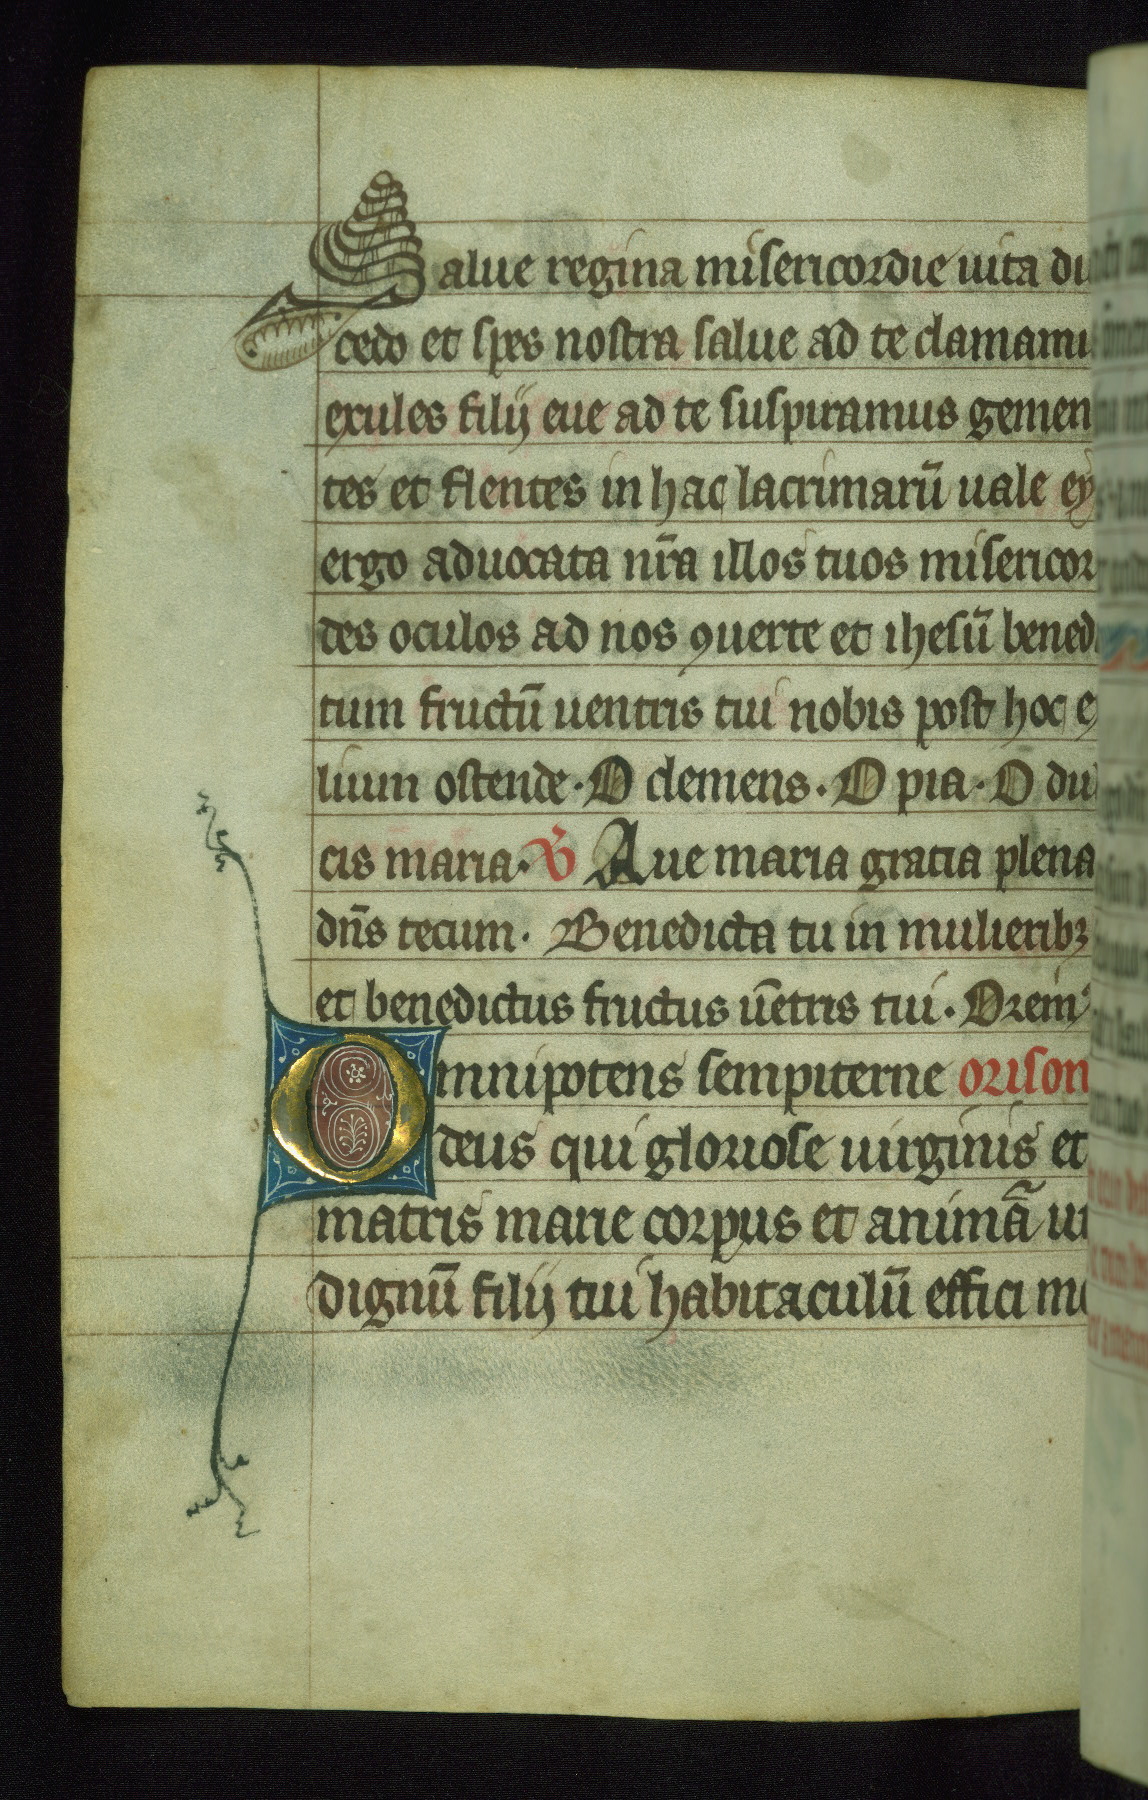 Salue regina misericordie uita du
cedo et spes nostra salue ad te clamamu
exules filij eue ad te suspiramus gemen
tes et flentes in hac lacrimarū uale ey
ergo aduocata nr̄a illos tuos misericor
des oculos ad nos ꝯuerte et ihesū bened
tum fructū uentris tui nobis post hoc e
lium ostende · O clemens · O pia · O du
cis maria · ℣ Aue maria gracia plena
dn̄s tecum · Benedicta tu in mulieribꝫ
et benedictus fructus uētris tui · Oremꝰ
Omnipotens sempiterne orison
deus qui gloriose uirginis et
matris marie corpus et animā ut
dignū filij tui habitaculū effici me